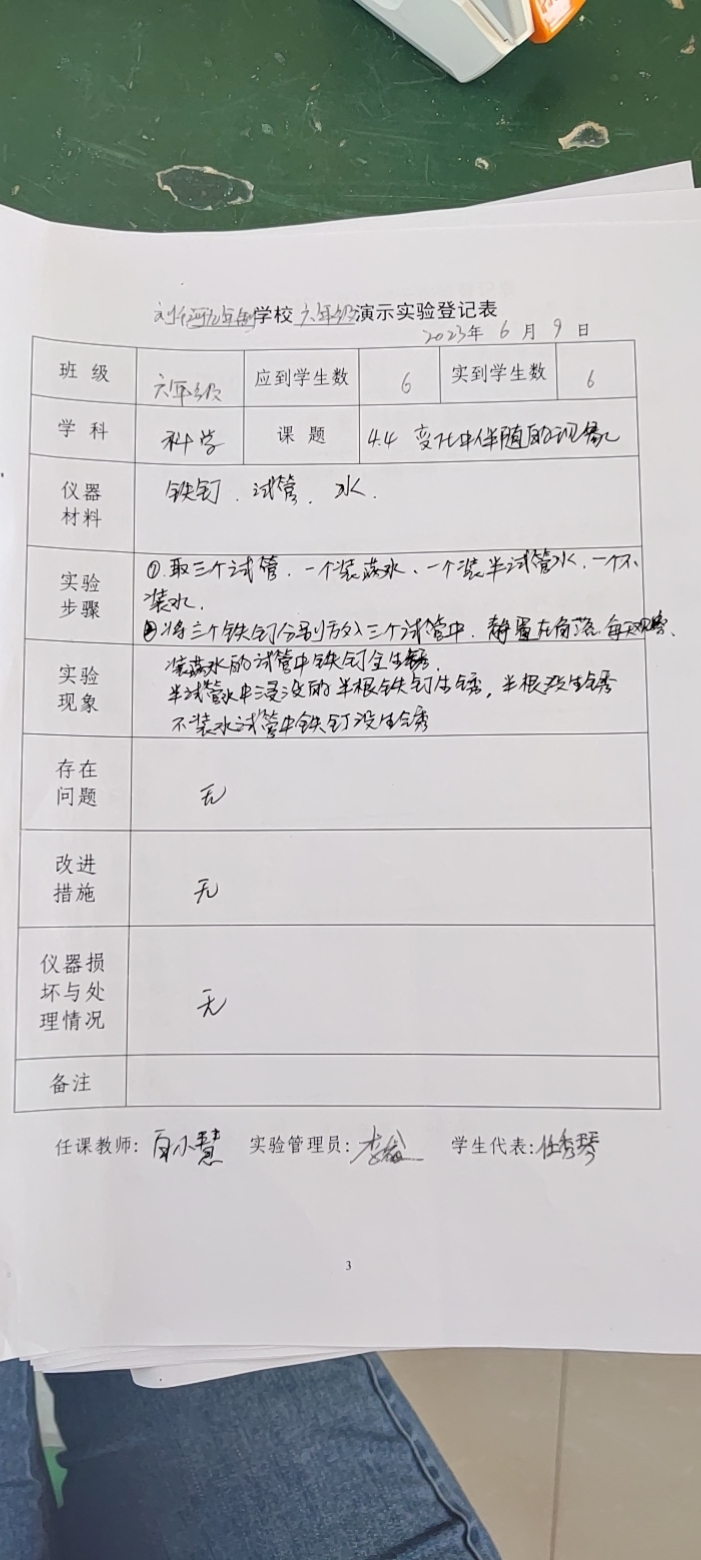 学校 六年级演示实验登记表
2023年 6 月 9 日
班 级 六年级 应到学生数 6 实到学生数 6
学 科 科学 课 题 4.4 变化中伴随的现象
仪器材料 铁钉、试管、水.
实验步骤 ①.取三个试管.一个装满水、一个装半试管水、一个不
装水.
②将三个铁钉分别放入三个试管中.静置在角落.每天观察、
实验现象 装满水的试管中铁钉全生锈.
半试管水中浸没的半根铁钉生锈，半根没生锈
不装水试管中铁钉没生锈
存在问题 无
改进措施 无
仪器损坏与处理情况 无
备注
任课教师: 小慧 实验管理员: 李 学生代表:任秀琴
3